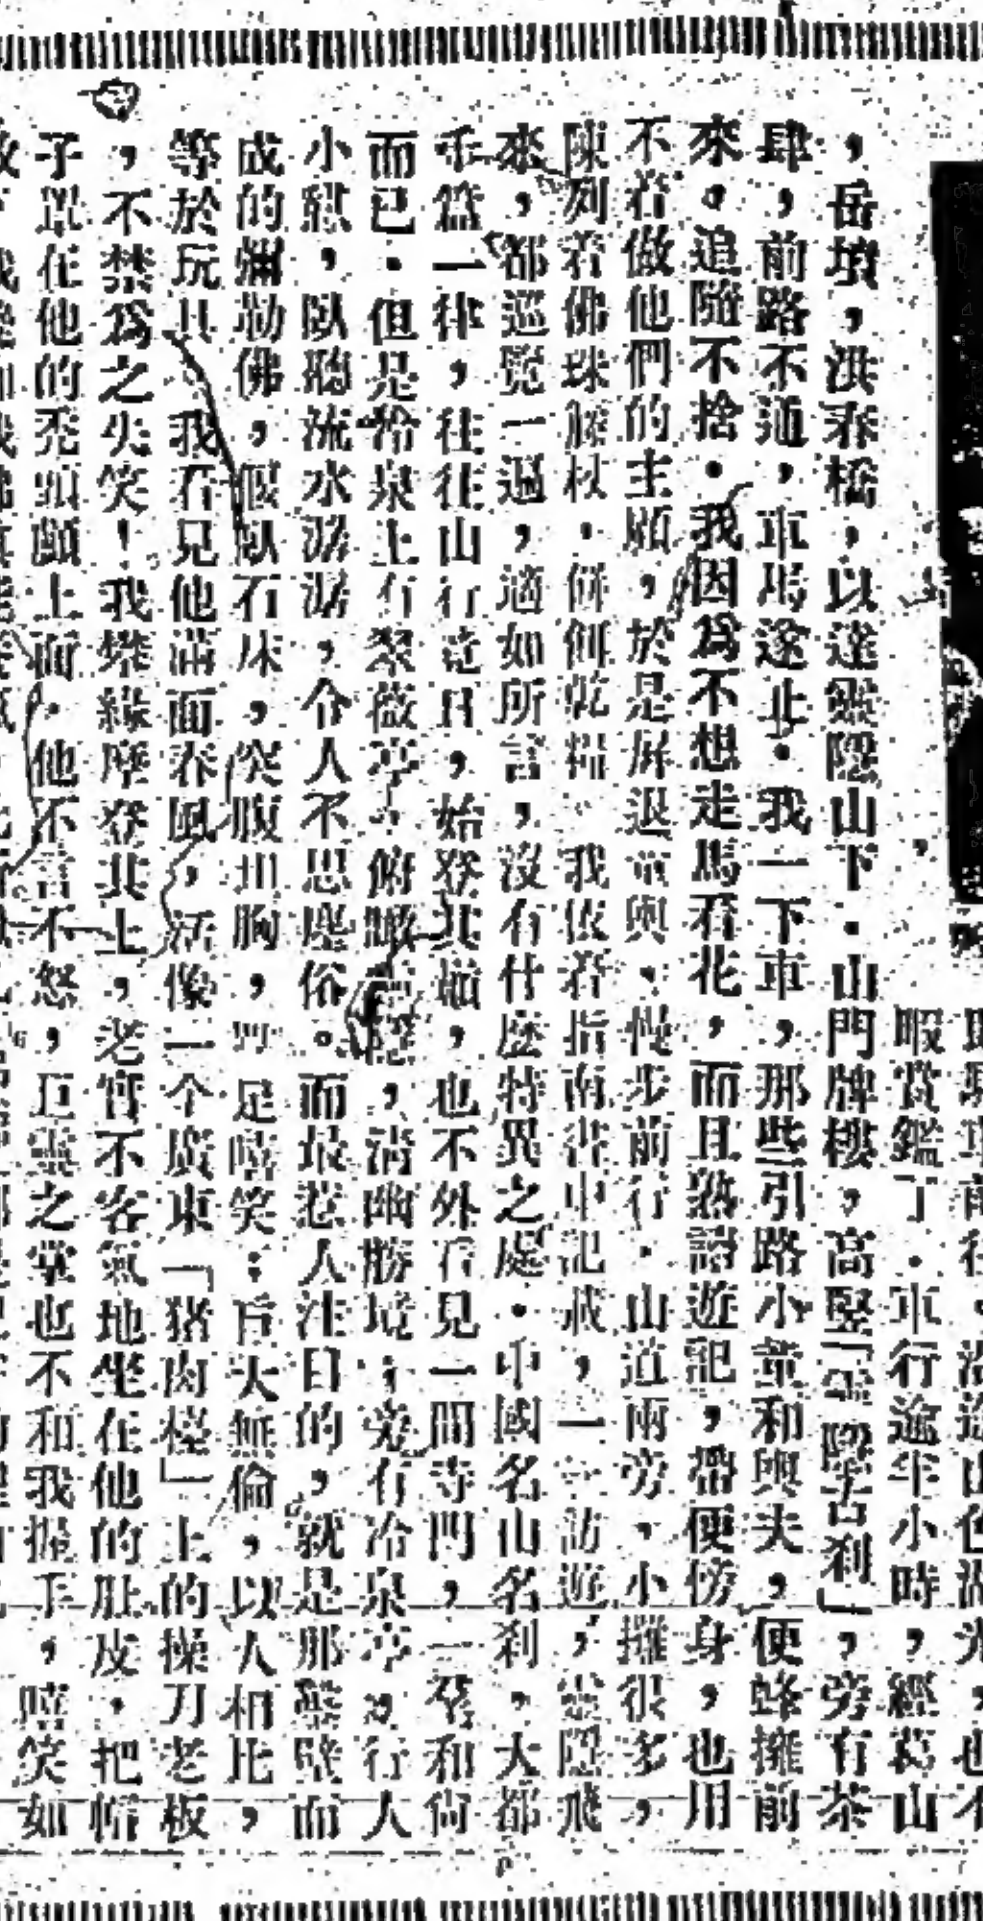 暇賞鑑了．車行逾半小時，經葛山
，岳墳，洪春橋，以達靈隱山下．山門牌樓，高竪「古刹」，旁有茶
肆，前路不通，車馬遂止．我一下車，那些引路小童和輿夫，便蜂擁前
來。追隨不捨．我因爲不想走馬看花，而且熟讀遊記，帶便傍身，也用
不着做他們的主顧，於是屏退童輿，慢步前行．山道兩旁，小攤很多，
陳列着佛珠籐杖，餅餌乾糧．我依着指南書中記載，一一訪遊，靈隱飛
來，都巡覽一過，適如所言，沒有什麽特異之處．中國名山名刹，大都
千篇一律，往往山行竟日，始登其巔，也不外看見一間寺門，一羣和尙
而已．但是冷泉上有翠薇亭，俯瞰靈隱，淸幽勝境；旁有冷泉亭，行人
小憇，臥聽流水潺潺，令人不思塵俗。而最惹人注目的，就是那壁而
成的彌勒佛，偃臥石床，突腹坦胸，足嘻笑：巨大無倫，以人相比，
等於玩具 我看見他滿面春風，活像一个廣東「猪肉檯」上的操刀老板
，不禁爲之失笑！我攀緣摩登其上，老實不客氣地坐在他的肚皮，把帽
子罩在他的禿頭顱上面．他不言不怒，巨靈之掌也不和我握手，嘻笑如